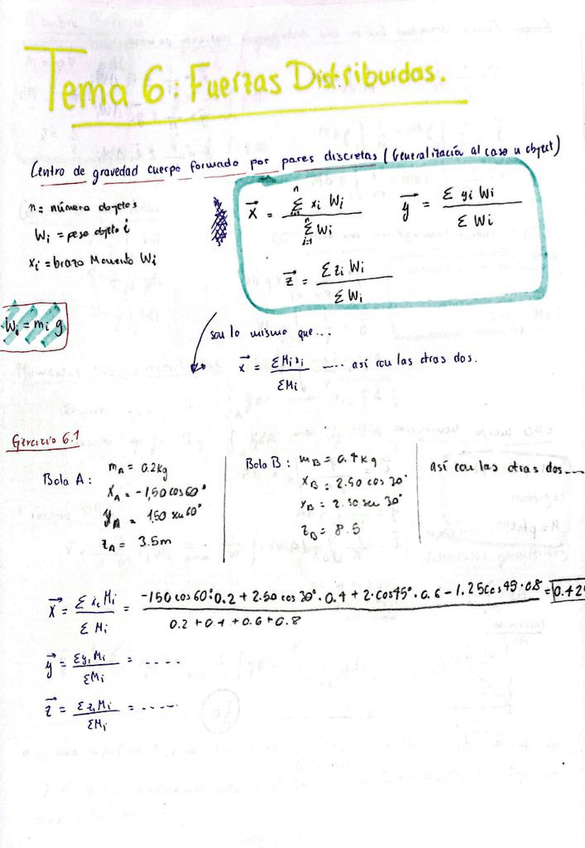 Tema 6: Fuerzas Distribuidas.
Centro de gravedad cuerpo formado por pares discretas (Generalización al caso n object)
n = número objetos
Wi = peso objeto i
xi = brazo Momento Wi
x⃗ = Σⁿᵢ₌₁ xi Wi / Σⁿᵢ₌₁ Wi
y⃗ = Σ yi Wi / Σ Wi
z⃗ = Σ zi Wi / Σ Wi
Wi = mi g
son lo mismo que...
x⃗ = Σ Mi xi / Σ Mi .... así con las otras dos.
Ejercicio 6.1
Bola A: mA = 0.2kg
XA = -1,50 cos 60°
yA = 1.50 sen 60°
zA = 3.5m
Bola B: mB = 0.4 kg
XB = 2.50 cos 30°
YB = 2.50 sen 30°
zB = 8.5
así con las otras dos....
x⃗ = Σ xi Mi / Σ Mi = -150 cos 60°·0.2 + 2.50 cos 30°·0.4 + 2·cos 45°·0.6 - 1.25 cos 45·0.8 / 0.2 + 0.4 + 0.6 + 0.8 = 0.42
y⃗ = Σ yi Mi / Σ Mi = ....
z⃗ = Σ zi Mi / Σ Mi = .....